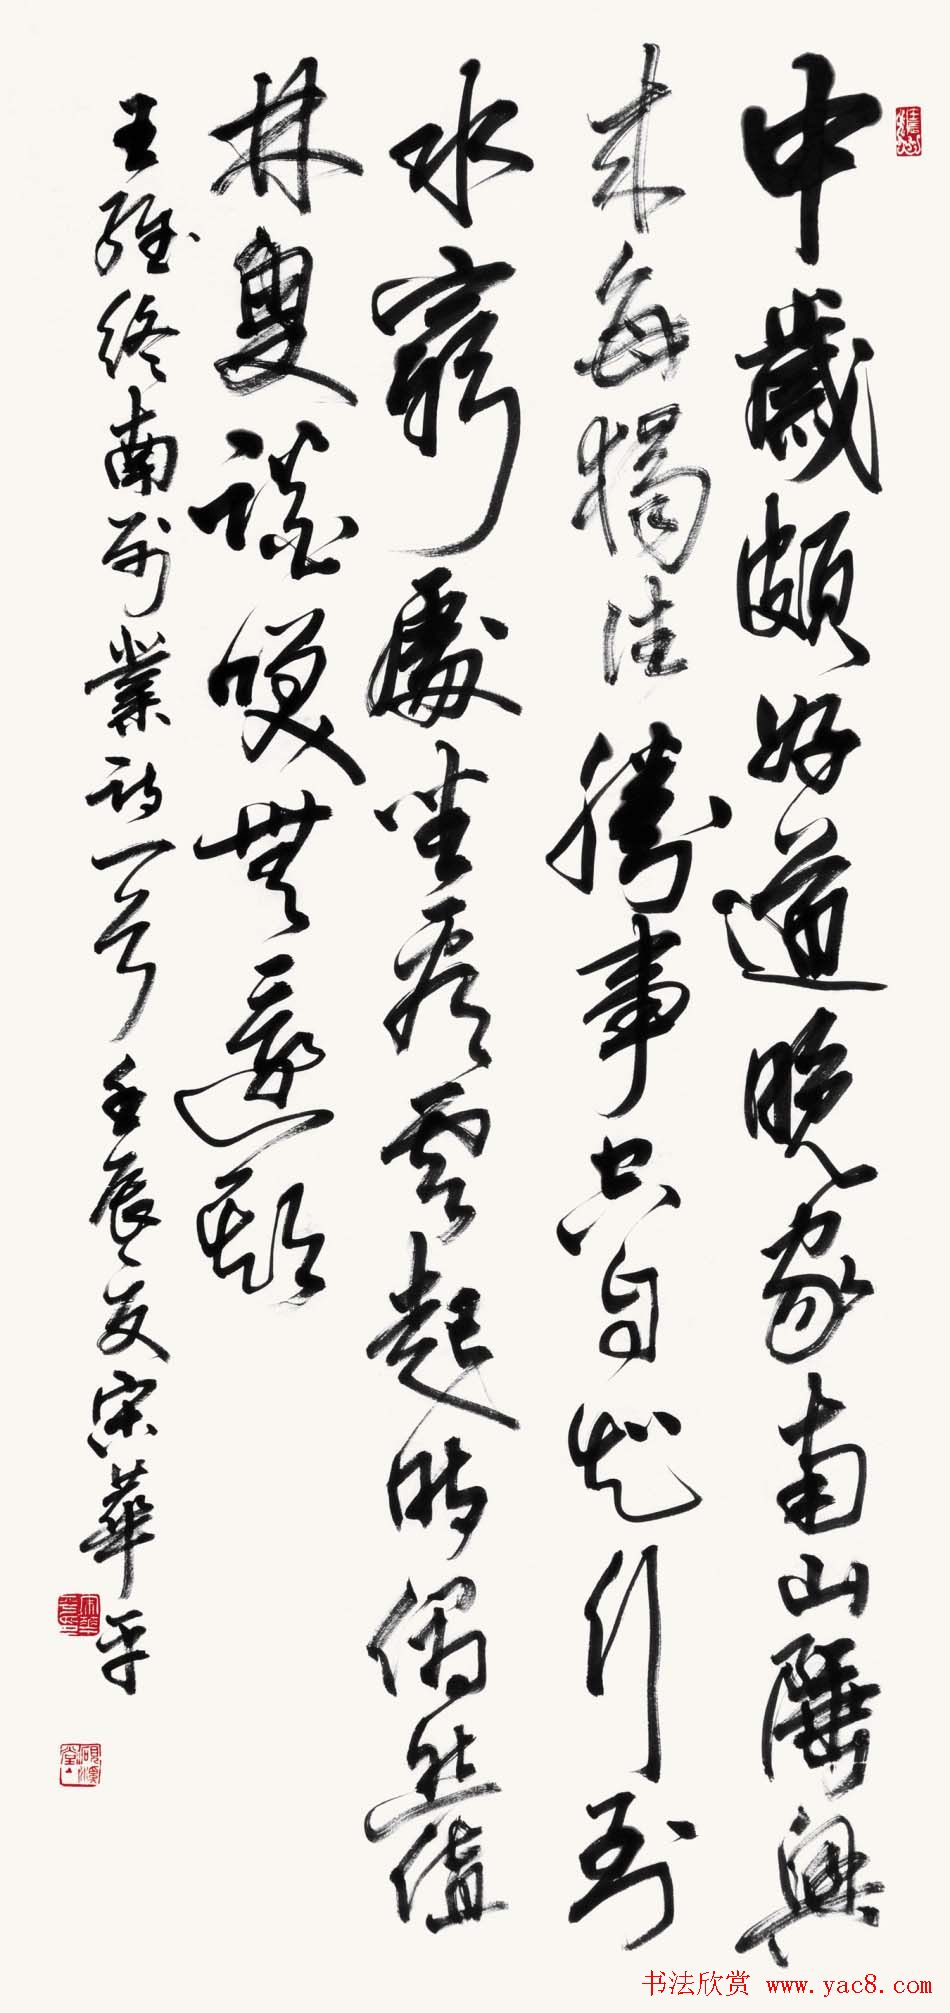 中歲頗好道晚家南山陲興
來每獨往勝事空自知行到
水窮處坐看雲起時偶然值
林叟談笑無還期
王維終南別業詩一首壬辰夏宋華平
书法欣赏 www.yac8.com